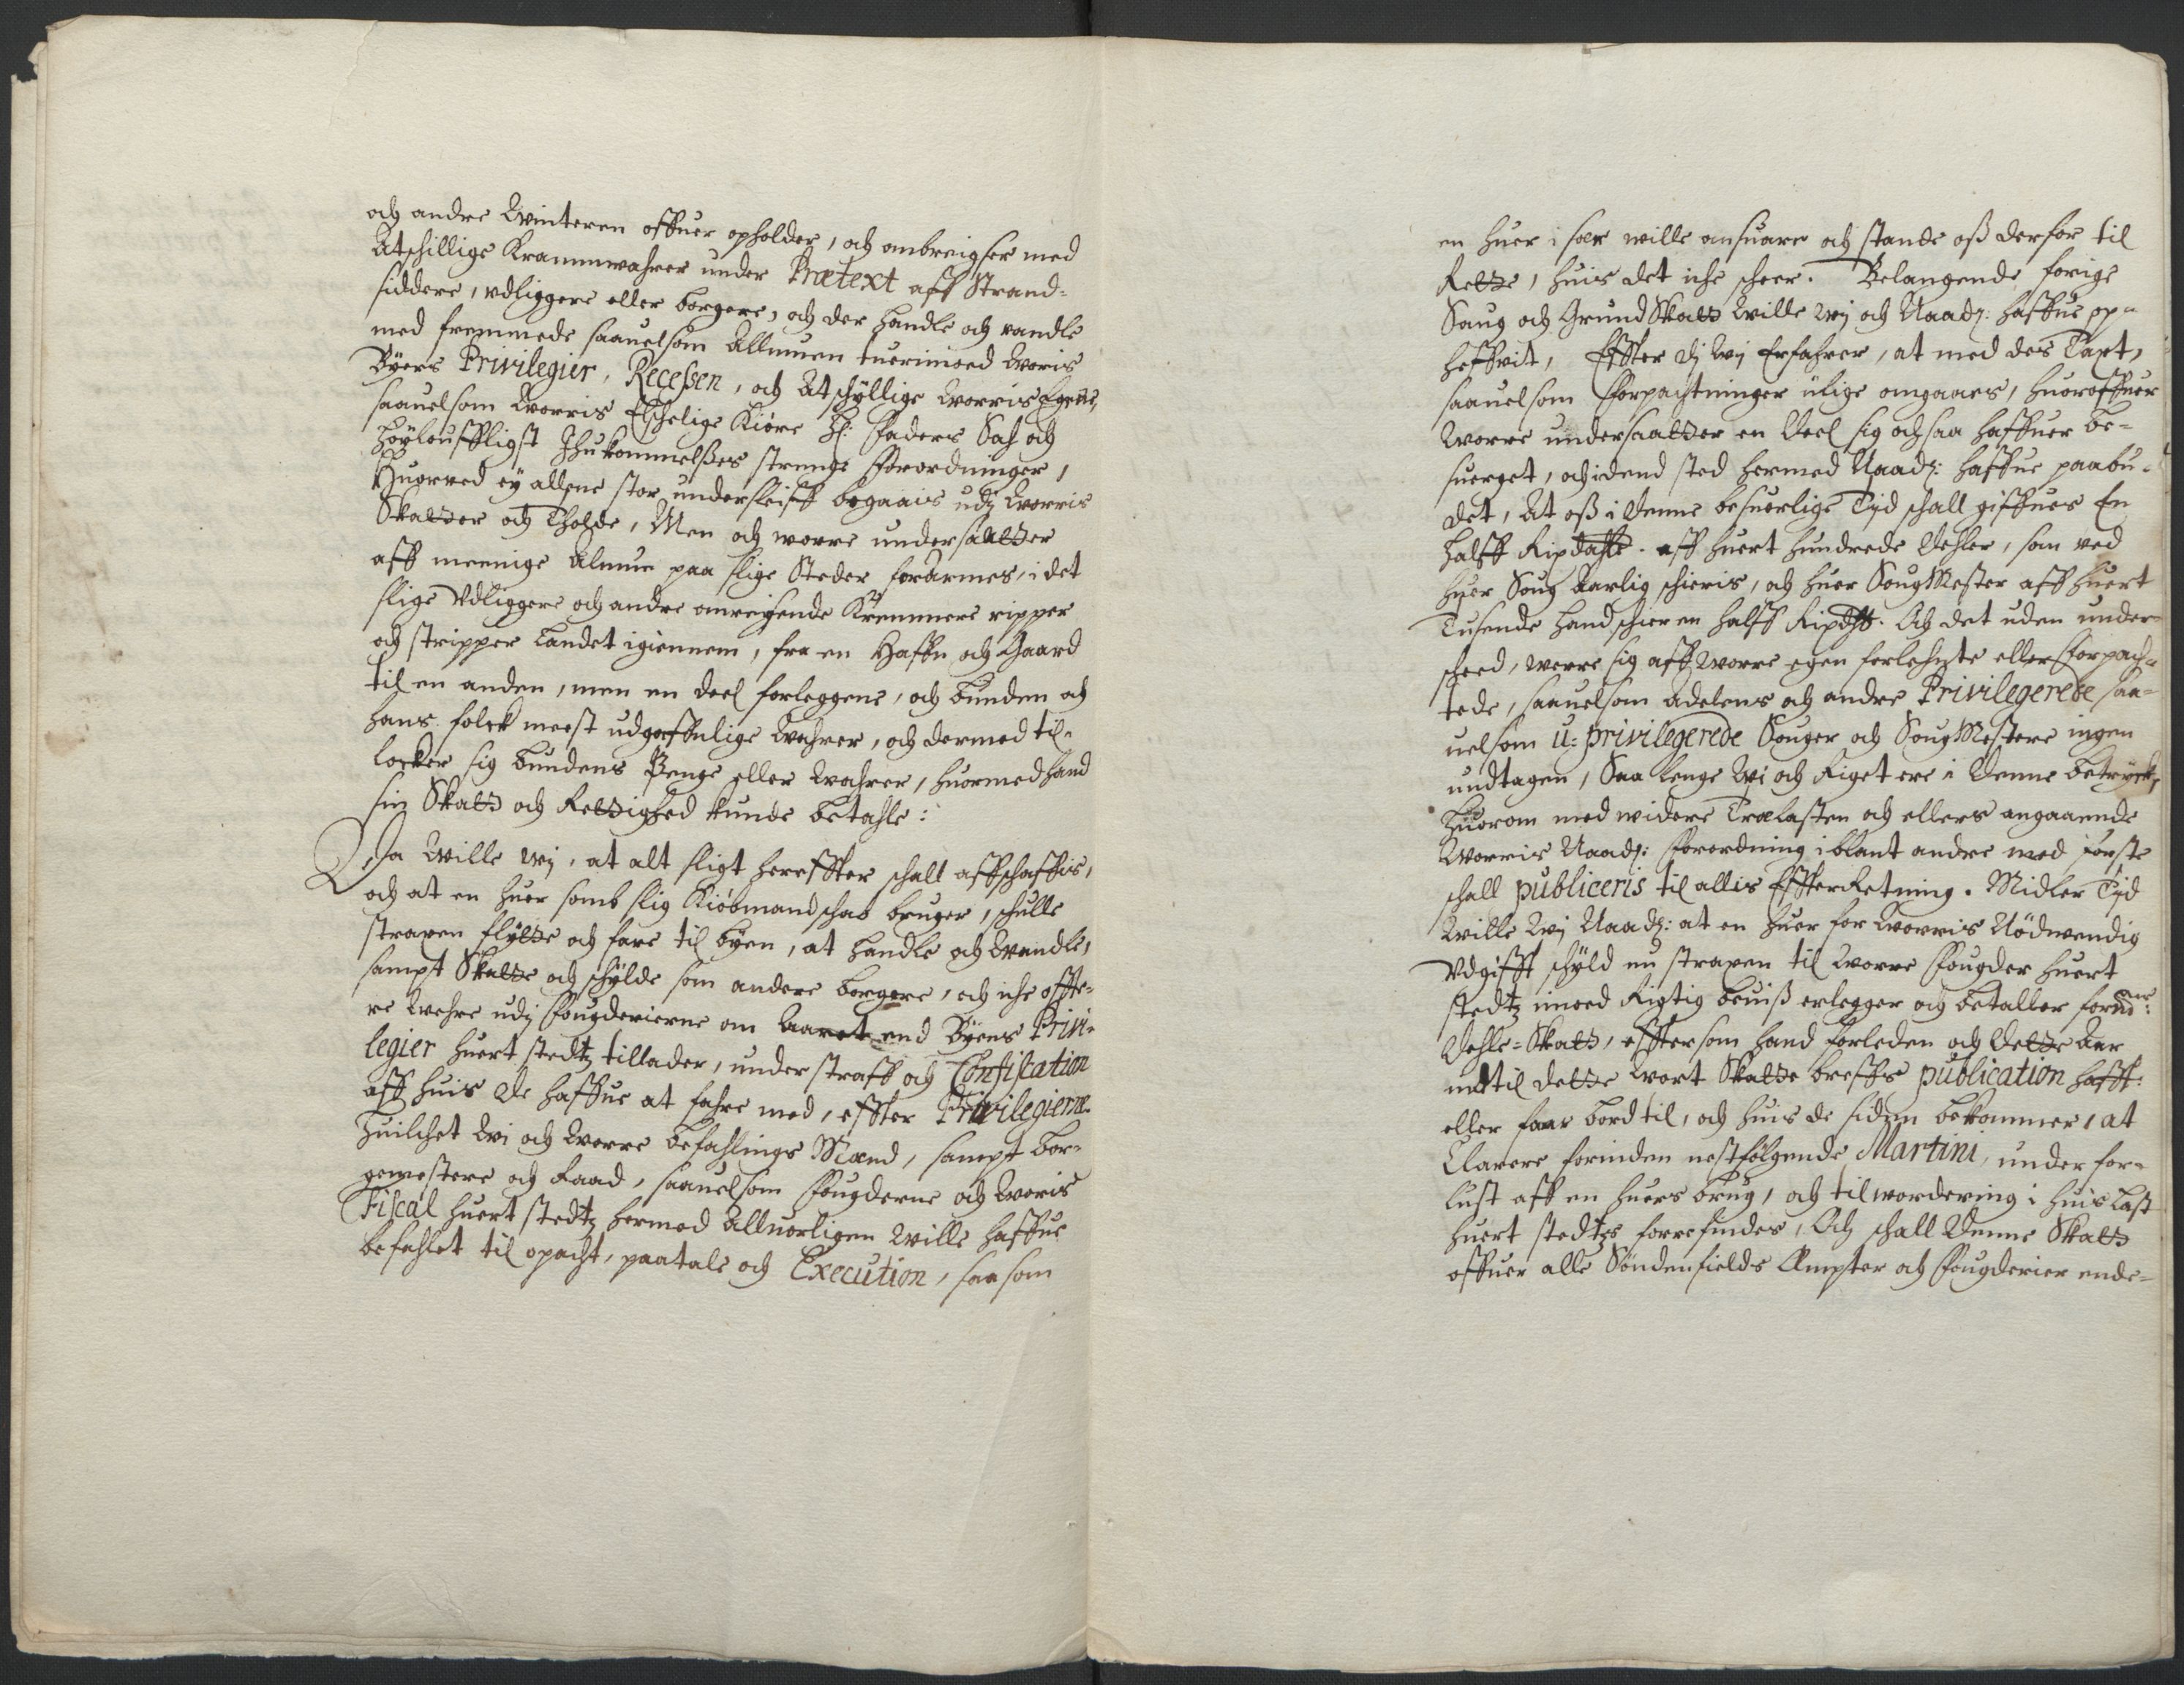 och andre Winteren offuer opholder, och ombreigser med
Atschillige Krammwahrer under Prætext aff Strand-
siddere, udliggere eller borgere, och der handle och vandle
med fremmede saauelsom Allmuen tuerimoed Woris
Byers Privilegier, Recessen, och Atschyllige Worris Egene,
saauelsom Worris Elschelige Kiære Hl: Faders Sal och
Höyloufflligst Ihukommelsses strenge Forordninger,
Huorved ey allene stor undersleiff begaais udj Worris
Skatter och Tholde, Men och worre undersaatter
aff meenige Almue paa slige Steder forarmes, i det
slige Udliggere och andre omreigsende Kremmere ripper
och stripper Landet igiennem, fra en Haffn och Gaard
til en anden, men en deel forleggene, och bunden och
hans folck meest udgieffnlige Wahrer, och dermed til-
locker sig bundens Penge eller Wahrer, huormed hand
sin Skatt och Rettighed kunde betahle:
Da Wille wj, at alt sligt hereffter schall affschaffis,
och at en huer somb slig Kiöbmandschab bruger, schulle
straxen flytte och fare til byen, at handle och Wandle,
sampt Skatte och schylde som andere borgere, och iche offte-
re Wehre udj Fougderierne om Aaret end Byens Privi-
legier huert stedtz tillader, under straff och Confiscation
aff huis de haffue at fahre med, effter Privilegierne.
Huilchet Wi och Worre befahlings Mænd, sampt bor-
gemestere och Raad, saauelsom Fougderne och Woris
Fiscal huert stedtz hermed Alluorligen Wille haffue
befahlet til opacht, paatale och Execution, saa som
en huer i sær wille ansuare och stande oss derfor til
Rette, huis det iche scheer. Belangende forige
Saug och Grund Skatt Wille wj och Naadl: haffue op-
heffvit, Effter dj Wj Erfahrer, at med des Taxt,
saauelsom Forpachtninger ulige omgaaes, huoroffuer
Worre undersaatter en Deel sig ochsaa haffuer be-
suerget, och i dend sted hermed Naadl: haffue paabu-
det, At oss i denne besuerlige Tjd schall giffues En
halff Rixdahle. aff huert hundrede Dehler, som ved
huer Saug Aarlig schieris, och huer SougMester aff huert
Tusende hand schier en halff Rixdlr. Och det uden under-
scheed, were sig aff worre egen forlehnte eller Forpach-
tede, saauelsom Adelens och andre Privilegerede saa-
uelsom u: privilegerede Souger och SougMestere ingen
undtagen, Saa lenge Wi och Riget ere i denne betryck,
Huorom med widere Trælasten och ellers angaaende
Worris Naadl: Forordning iblant andre med förste
schall publiceris til allis EffterRetning. Midler Tjd
Wille Wj Naadl: at en huer for Worris Nödwendig
Udgifft schyld nu straxen til Worre Fougder huert
stedtz imoed Rigtig beuiss erlegger och betaller fornne:
Dehle-Skatt, effter som hand forleden och dette Aar
indtil dette Wort Skatte breffs publication hafft:
eller faar bord til, och huis de siden bekommer, at
Clarere forinden nestfölgende Martini, under for-
lust aff en huers brug, och tilwordering i huis Last
huert stedtzs forrefindes, Och schall denne Skatt
offuer alle Söndenfields Ampter och Fougderier ende-